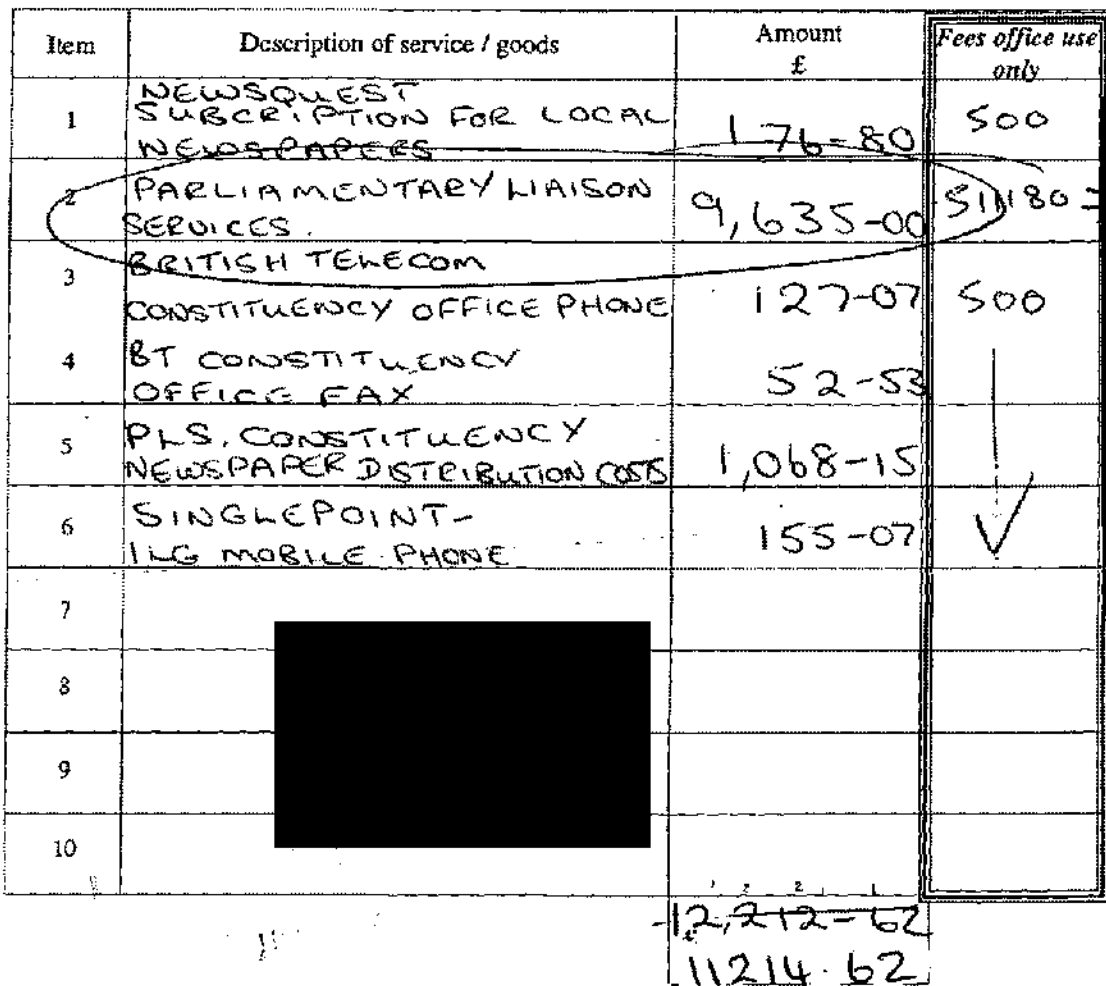 Item Description of service / goods Amount £ Fees office use only
NEWSQUEST
1 SUBCRIPTION FOR LOCAL 176-80 500
NEWSPAPERS
2 PARLIAMENTARY LIAISON 9,635-00
SERVICES.
3 BRITISH TELECOM
CONSTITUENCY OFFICE PHONE 127-07 500
4 BT CONSTITUENCY
OFFICE FAX 52-53
5 PLS. CONSTITUENCY
NEWSPAPER DISTRIBUTION COSTS 1,068-15
6 SINGLEPOINT-
ILG MOBILE PHONE 155-07
7
8
9
10
12,212-62
11214.62